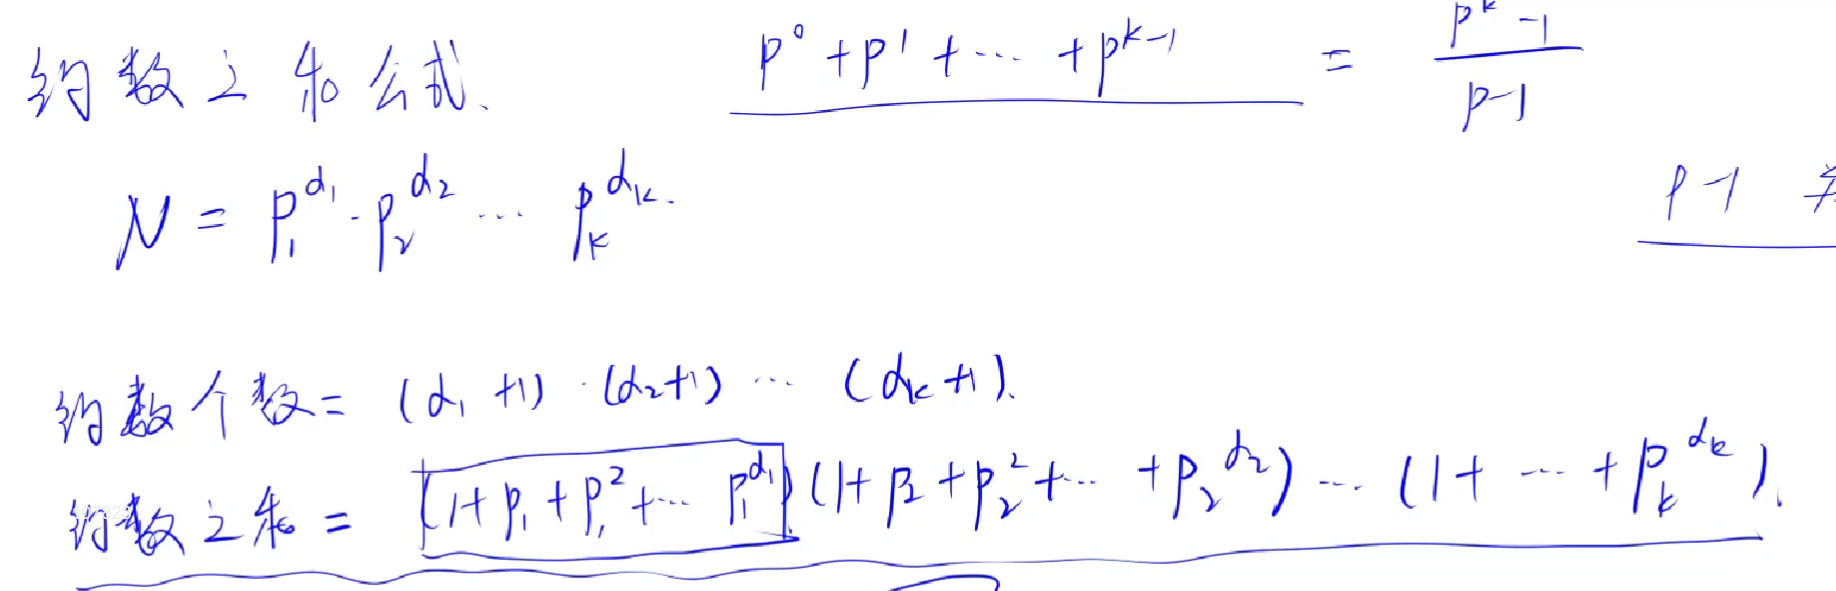 约数之和公式. p^0 + p^1 + ... + p^{k-1} = \frac{p^k - 1}{p-1}
N = p_1^{α_1} · p_2^{α_2} ... p_k^{α_k}.
p-1
约数个数 = (α_1+1) · (α_2+1) ... (α_k+1).
约数之和 = (1+p_1+p_1^2+... p_1^{α_1}) (1+p_2+p_2^2+... +p_2^{α_2}) ... (1+ ... +p_k^{α_k}).